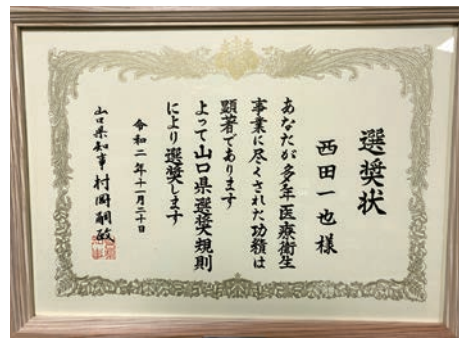 選奨状
西田一也様
あなたが多年医療衛生
事業に尽くされた功績は
顕著であります
よって山口県選奨規則
により選奨します
令和二年十一月二十日
山口県知事 村岡嗣政